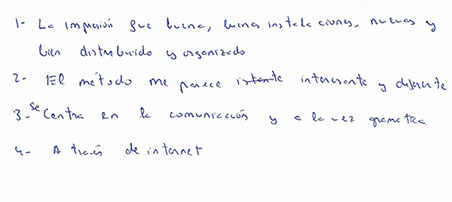 1- La impresión fue buena, buenas instalaciones, nuevas y
bien distribuido y organizado
2- El método me parece interesante y diferente
3- Se Centra en la comunicación y a la vez gramática
4- A través de internet